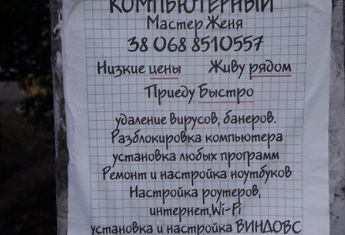 КОМПЬЮТЕРНЫЙ
Мастер Женя
38 068 8510557
Низкие цены Живу рядом
Приеду Быстро
удаление вирусов, банеров.
Разблокировка компьютера
установка любых программ
Ремонт и настройка ноутбуков
Настройка роутеров,
интернет, Wi-Fi
установка и настройка ВИНДОВС